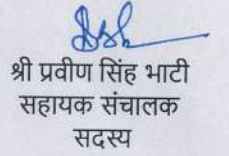 श्री प्रवीण सिंह भाटी
सहायक संचालक
सदस्य